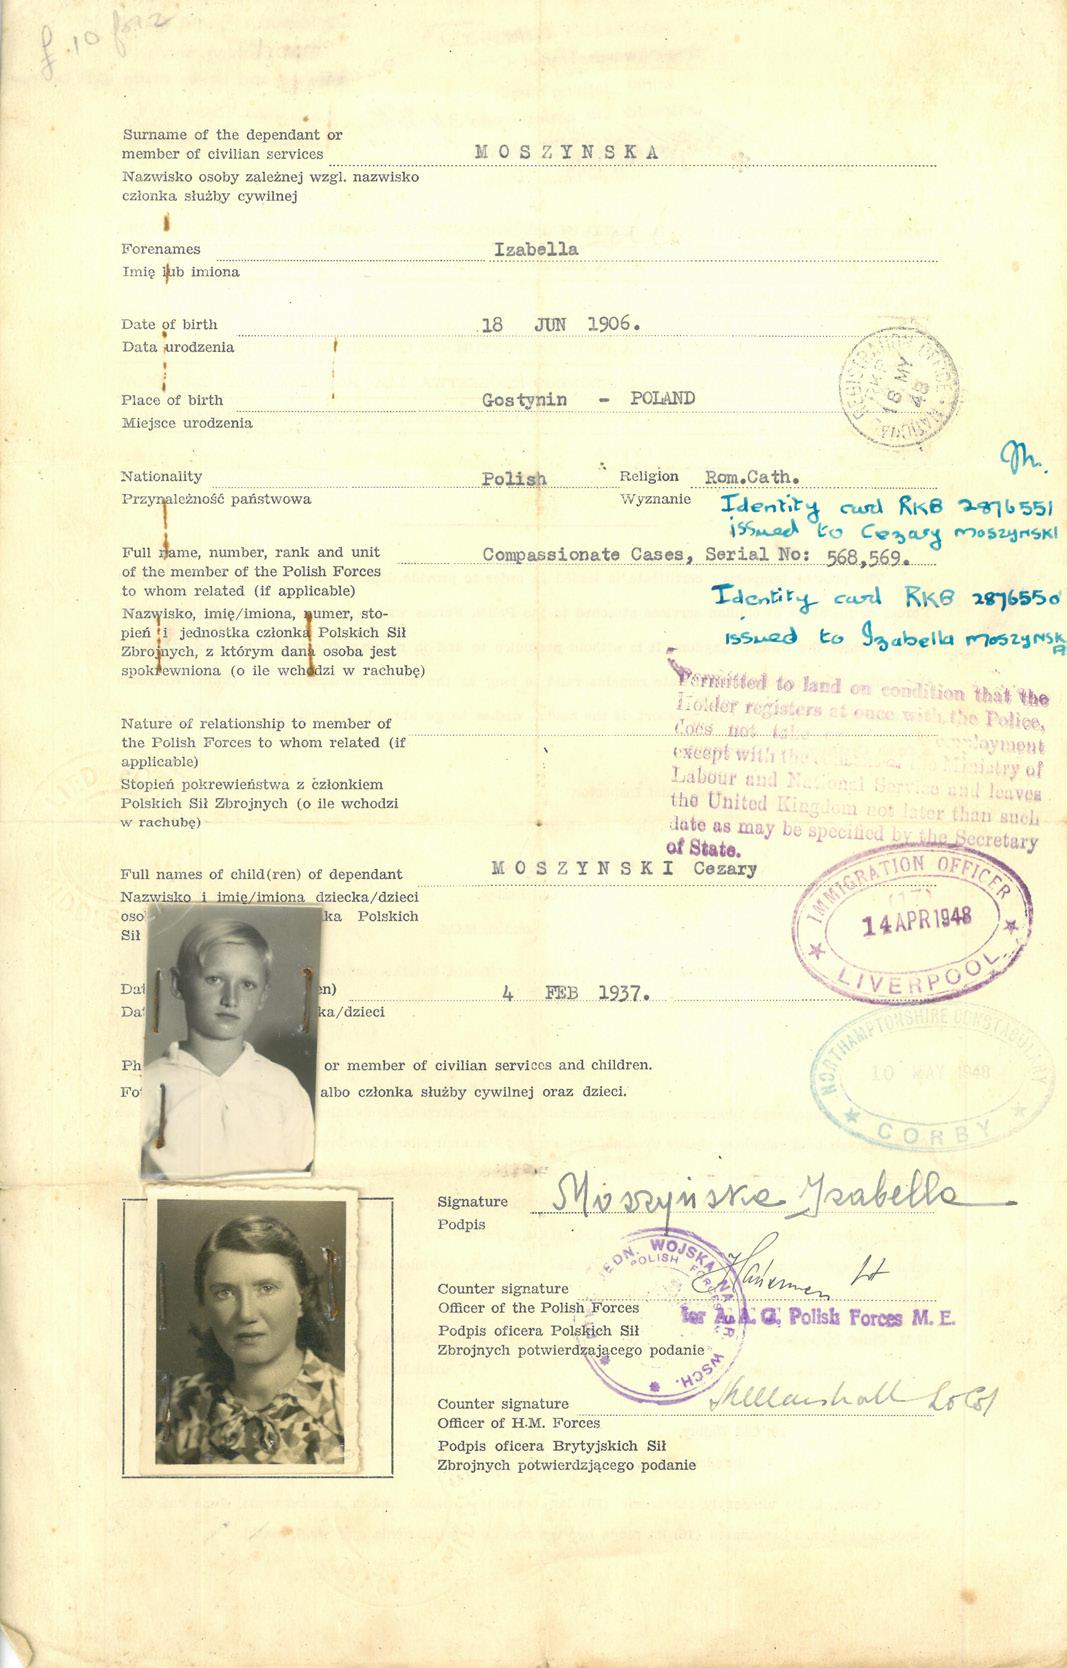 £ 10 for 2
Surname of the dependant or
member of civilian services MOSZYNSKA
Nazwisko osoby zależnej wzgl. nazwisko
członka służby cywilnej
Forenames Izabella
Imię lub imiona
Date of birth 18 JUN 1906.
Data urodzenia
Place of birth Gostynin - POLAND
Miejsce urodzenia
NATIONAL REGISTRATION OFFICE
RKB
18 MY
48
Nationality Polish Religion Rom.Cath.
Przynależność państwowa Wyznanie
Identity card RKB 2876551
issued to Cezary MOSZYNSKI
Full name, number, rank and unit Compassionate Cases, Serial No: 568,569.
of the member of the Polish Forces
to whom related (if applicable)
Identity card RKB 2876550
issued to Izabella MOSZYNSKA
Nazwisko, imię/imiona, numer, sto-
pień i jednostka członka Polskich Sił
Zbrojnych, z którym dana osoba jest
spokrewniona (o ile wchodzi w rachubę)
Permitted to land on condition that the
Holder registers at once with the Police,
does not take employment
except with the Ministry of
Labour and National Service and leaves
the United Kingdom not later than such
date as may be specified by the Secretary
of State.
Nature of relationship to member of
the Polish Forces to whom related (if
applicable)
Stopień pokrewieństwa z członkiem
Polskich Sił Zbrojnych (o ile wchodzi
w rachubę)
Full names of child(ren) of dependant MOSZYNSKI Cezary
Nazwisko i imię/imiona dziecka/dzieci
oso ka Polskich
Sił
IMMIGRATION OFFICER
(17)
14 APR 1948
LIVERPOOL
Dat en) 4 FEB 1937.
Dat ka/dzieci
NORTHAMPTONSHIRE CONSTABULARY
10 MAY 1948
CORBY
Ph or member of civilian services and children.
Fot albo członka służby cywilnej oraz dzieci.
Signature Moszyńska Izabella
Podpis
JEDN. WOJSKA NA ŚR. WSCH.
POLISH FORCES
Counter signature Lt
Officer of the Polish Forces for A.A.G. Polish Forces M. E.
Podpis oficera Polskich Sił
Zbrojnych potwierdzającego podanie
Counter signature Lt Col
Officer of H.M. Forces
Podpis oficera Brytyjskich Sił
Zbrojnych potwierdzjącego podanie